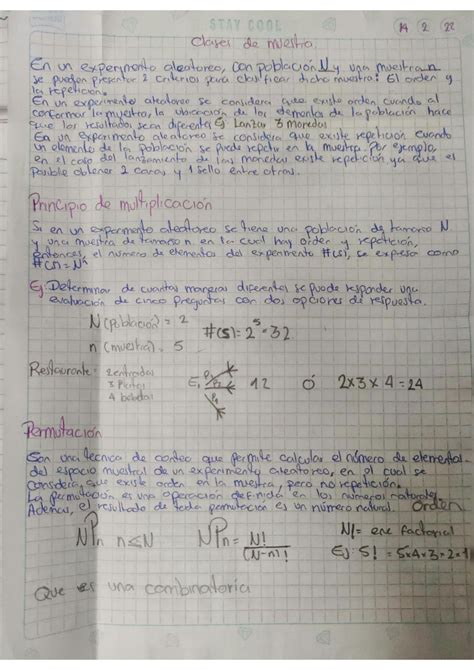 STAY COOL
14 2 22
Clases de muestra.
En un experimento aleatoreo, con población N y una muestra n
se pueden presentar 2 criterios para clasificar dicha muestra: El orden y
la repetición.
En un experimento aleatoreo se considera que existe orden cuando al
conformar la muestra, la ubicación de los elementos de la población hace
que los resultados sean diferentes Ej Lanzar 3 monedas
En un experimento aleatoreo se considera que existe repetición cuando
un elemento de la población se puede repetir en la muestra. Por ejemplo,
en el caso del lanzamiento de las monedas existe repetición, ya que es
posible obtener 2 caras y 1 sello entre otras.
Principio de multiplicación
Si en un experimento aleatoreo se tiene una población de tamaño N
y una muestra de tamaño n. en la cual hay orden y repetición,
entonces, el numero de elementos del experimento #(s), se expresa como
#(s) = Nⁿ
Ej: Determinar de cuantas maneras diferentes se puede responder una
evaluación de cinco preguntas con dos opciones de respuesta.
N (población) = 2
n (muestra) = 5
#(s) = 2⁵ = 32
Restaurante = 2 entradas
3 Platos
4 bebidas
E₁ P₁ P₂ P₃ 12 ó 2x3x4 = 24
Permutación
Son una tecnica de conteo que permite calcular el número de elementos
del espacio muestral de un experimento aleatoreo, en el cual se
considera, que existe orden en la muestra, pero no repetición.
La permutación es una operación definida en los números naturales
Ademas, el resultado de toda permutación es un número natural. Orden
NPn n≤N NPn = N! / (N-n)! N! = ene factorial
Ej: 5! = 5x4x3x2x1
Que es una combinatoria